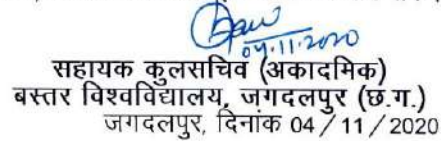 04.11.2020
सहायक कुलसचिव (अकादमिक)
बस्तर विश्वविद्यालय, जगदलपुर (छ.ग.)
जगदलपुर, दिनांक 04 / 11 / 2020